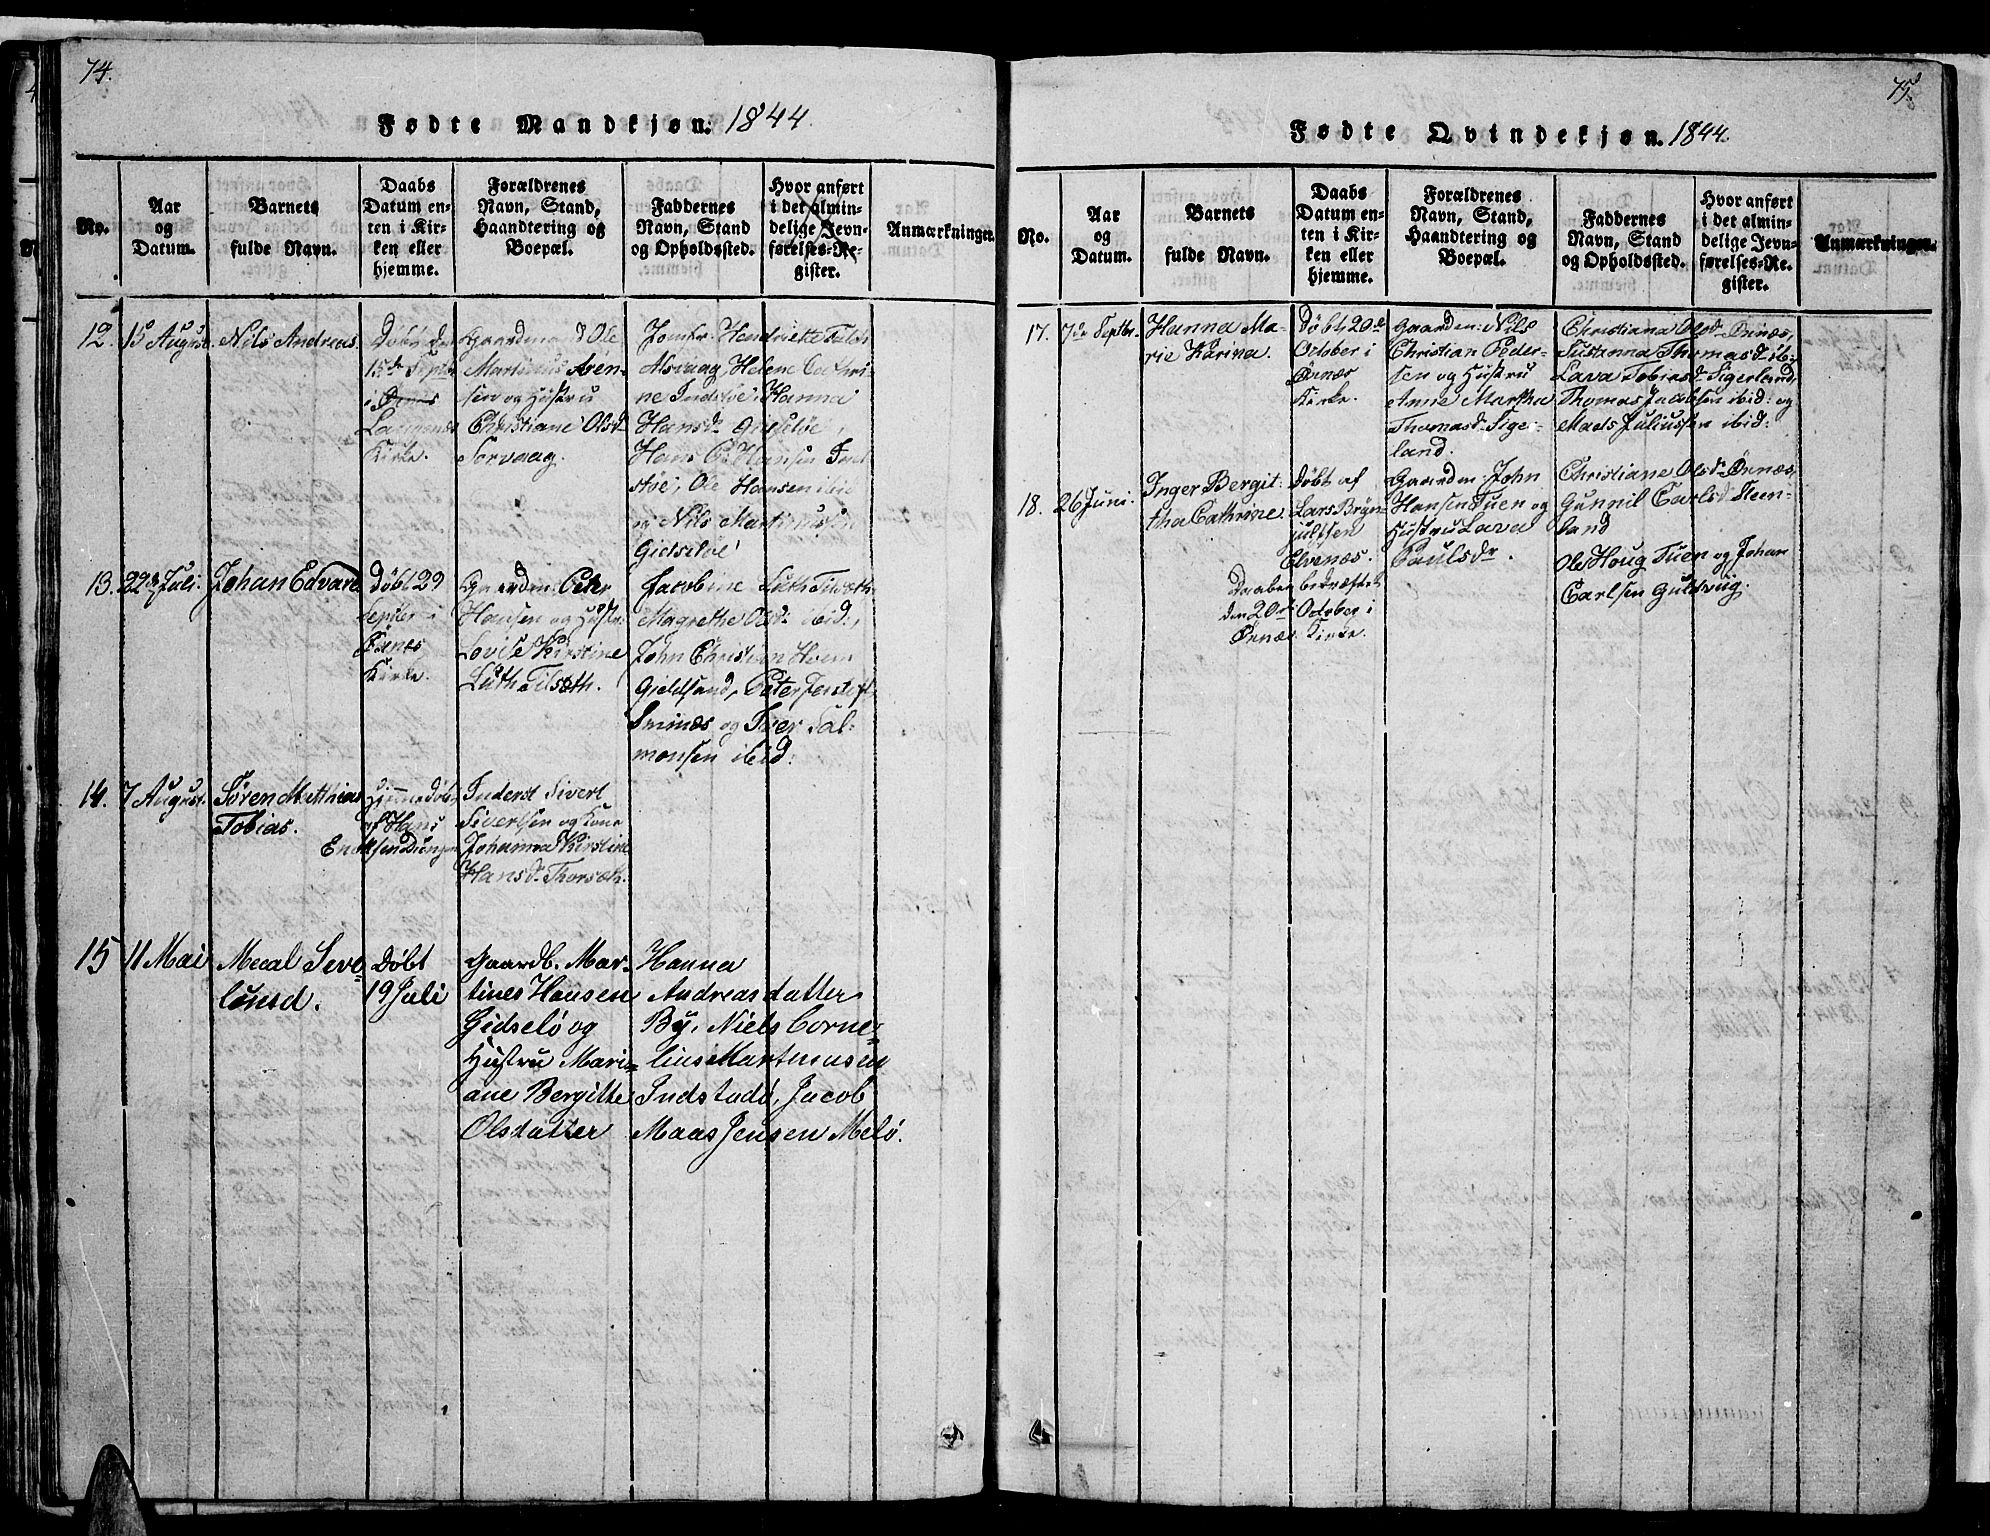 74.
Fødte Mandkjøn. 1844.
No.
Aar og Datum.
Barnets fulde Navn.
Daabs Datum enten i Kirken eller hjemme.
Forældrenes Navn, Stand, Haandtering og Boepæl.
Faddernes Navn, Stand og Opholdssted.
Hvor anført i det almindelige Jevnførelses-Register.
Anmærkninger.
12.
15 August.
Nils Andreas.
Døbt den
15de Septbr
i Ørnes
Kirke.
Ole
Martinus Aren-
sen og Hustru
Christiane Olsd.
Sørvaag.
Jomfr. Hendriette Falch
Alsvaag, Helene Cathri-
ne Indstøe, Hanna
Hansd. Gidsløe,
Hans P. Hansen Ind-
støe, Ole Hansen ibid
og Nils Martinussen
Gidsløe
13.
22de Juli.
Johan Edvard
Døbt 29
Septbr i
Ørnes
Kirke.
Gaardm. Peter
Hansen og Hustr.
Lovise Kirstine
Lüth Tilsæth.
Jacobine Lüth Tilsæth
Magrethe Olsd. ibid,
John Christian Hvem
Gjeldsand, Peter
Sminæs og Iver Sal-
monsen ibid.
14.
7 August.
Søren Mathias
Tobias.
Hjemmedøbt
af Hans
EnoksenDungen
Inderst Sivert
Sivertsen og Kone
Johanna Kirstine
Hansd. Thorsæth.
15
11 Mai
Mecal Seve-
lund.
Døbt
19 Juli
Gaardb. Mar-
tines Hansen
Gidselö og
Hustru Mari-
ane Bergitte
Olsdatter
Hanna
Andreasdatter
By, Niels Corne-
lius Martinusen
Indstadö, Jacob
Maas Jensen Melö.
75.
Fødte Qvindekjøn. 1844.
No.
Aar og Datum.
Barnets fulde Navn.
Daabs Datum enten i Kirken eller hjemme.
Forældrenes Navn, Stand, Haandtering og Boepæl.
Faddernes Navn, Stand og Opholdssted.
Hvor anført i det almindelige Jevnførelses-Register.
Anmærkninger.
17.
7de Septbr.
Hanna Ma-
rie Karina.
Døbt 20de
October i
Ørnæs
Kirke.
Gaardm: Nils
Christian Peder-
sen og Hustru
Anne Martha
Thomasd. Siger-
land.
Christiana Olsd. Ørnæs,
Susanna Thomasd. ib:
Lava Tobiasd. Sigerland,
Thomas Jacobsen ibid: og
Mads Juliussen ibid:
18.
26 Juni.
Inger Bergit-
tha Cathrine.
Døbt af
Lars Bryn-
julfsen
Elvenæs.
Daaben bekræftet
den 20de October i
Ørnæs Kirke.
Gaardm: John
Hansen Tuen og
Hustru Lava
Paulsdr.
Christiane Olsd. Ørnæs
Gunnil Carlsd. Steen-
land
Ole Houg Tuen og Johan
Carlsen Guldsvig.